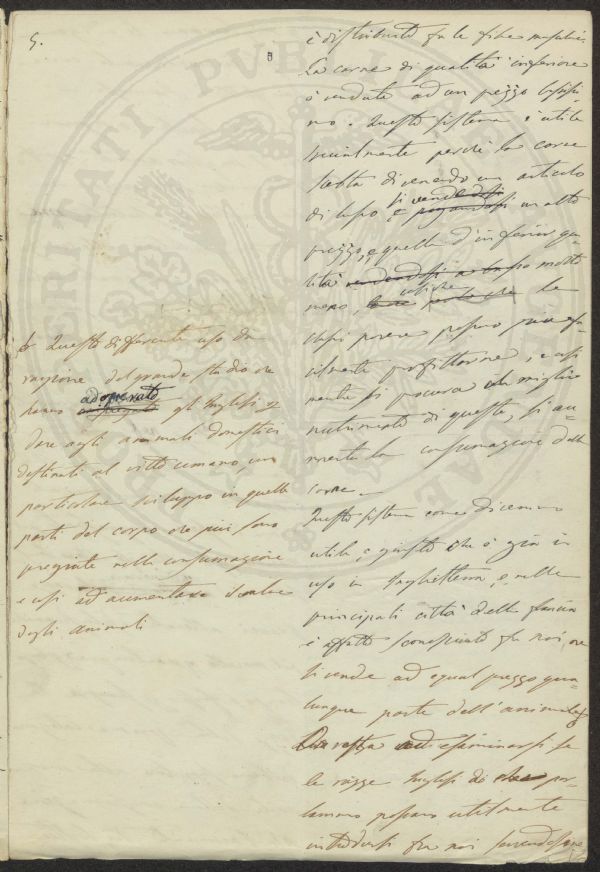 5.
è distribuito fra le fibre muscolari
La carne di qualità inferiore
è venduta ad un prezzo bassissi-
mo. Questo sistema è utile
specialmente perchè la carne
scelta divenendo un articolo
di lusso si vende
è pagandosi un alto
prezzo, e quella d'inferior qua-
lità vendendosi a basso molto
meno, le
classi povere possono più fa-
cilmente profittarne, e così
mentre si procura un miglior
nutrimento di queste, si au-
menta la consumazione della
carne
Questo sistema come dicemmo
utile, e giusto che è già in
uso in Inghilterra, e nelle
principali città della Francia
è affatto sconosciuto fra noi, ove
si vende ad egual prezzo qua-
lunque parte dell'animale
Ora resta ad esaminarsi se
le razze Inglesi di che par-
lammo possano utilmente
introdursi fra noi
Questo differente uso da
ragione del grande studio che
hanno adoperato
impiegato gli Inglesi per
dare agli animali domestici
destinati al vitto umano, un
particolare sviluppo in quelle
parti del corpo che più sono
pregiate nella consumazione
e così ad aumentare il valore
degli animali